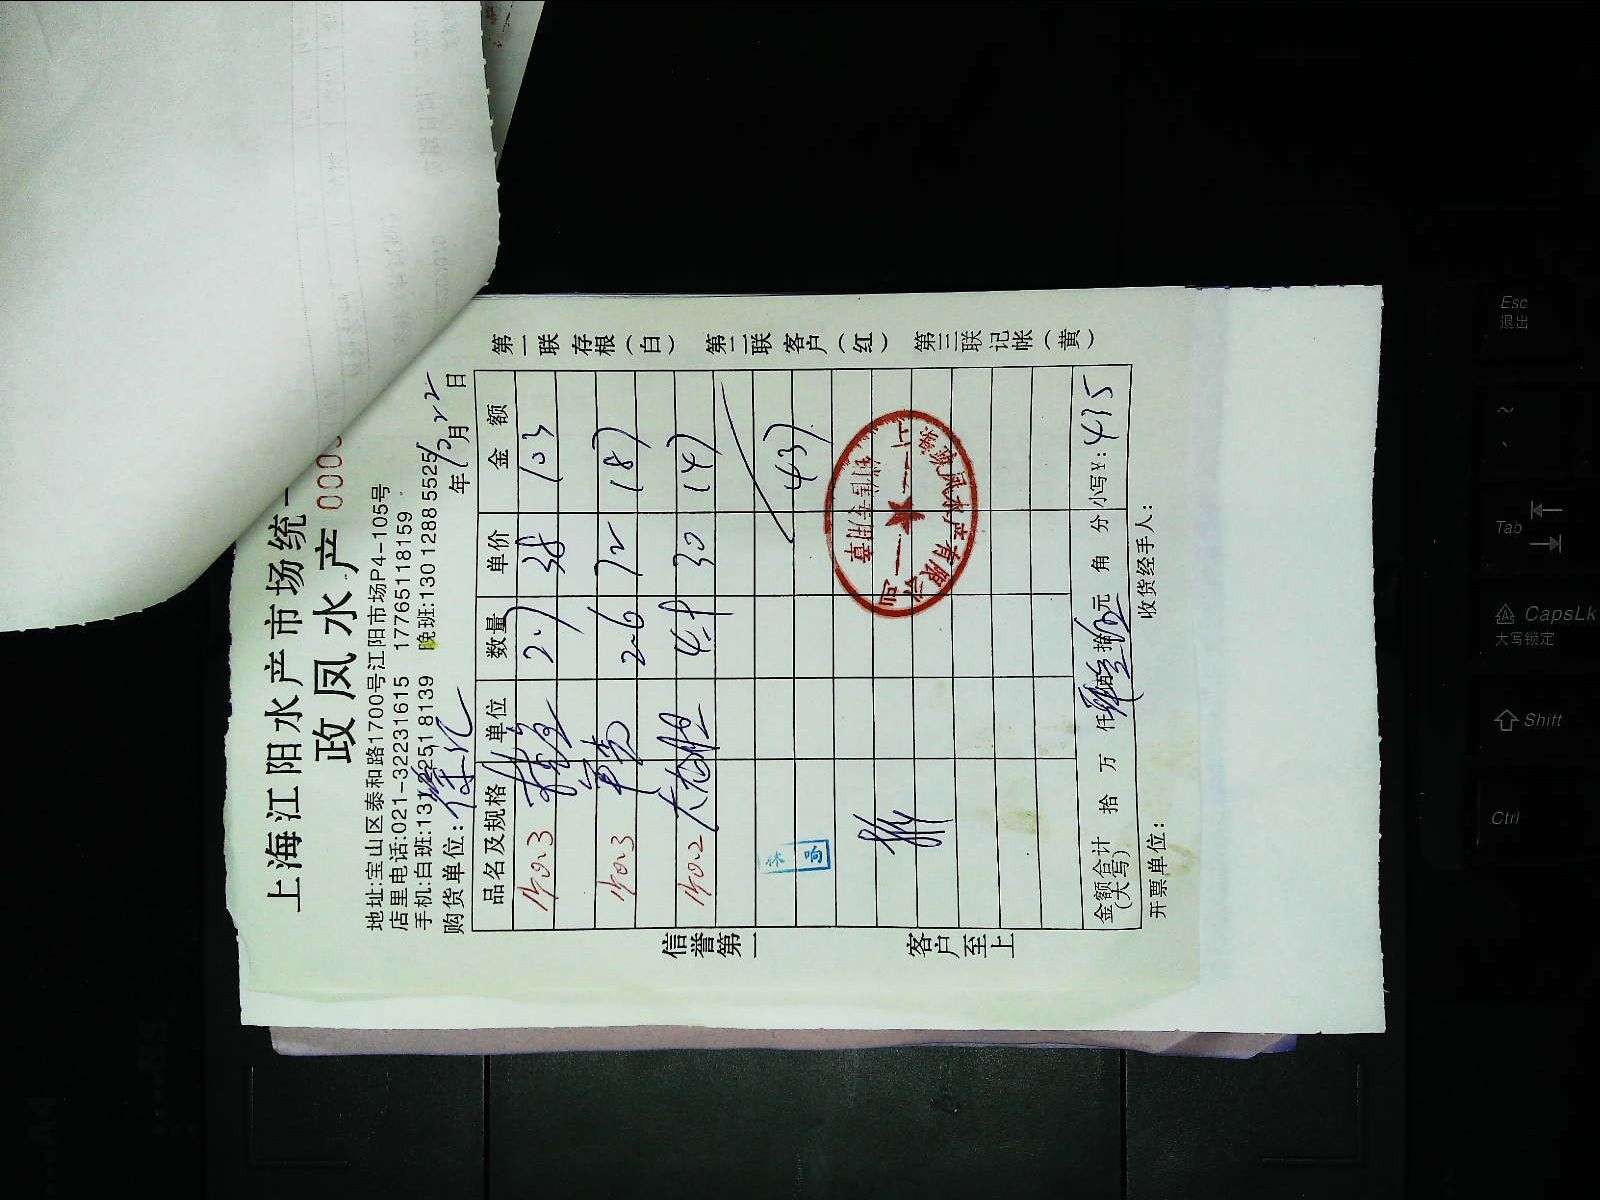 上海江阳水产市场统一
政凤水产 000
地址:宝山区泰和路1700号江阳市场P4-105号
店里电话:021-32231615 17765118159
手机:白班:131 2251 8139 晚班:130 1288 5525
购货单位: 徐记 年 12月22日
品名及规格 单位 数量 单价 金额
2.7 38 103
2.6 72 187
大花蛤 4.9 30 147
437
金额合计(大写) 拾 万 仟 肆佰叁拾伍元 角 分 小写¥: 435
开票单位: 收货经手人:
第一联存根(白) 第二联客户(红) 第三联记帐(黄)
信誉第一 客户至上
Esc
退出
~
Tab
CapsLk
大写锁定
Shift
Ctrl